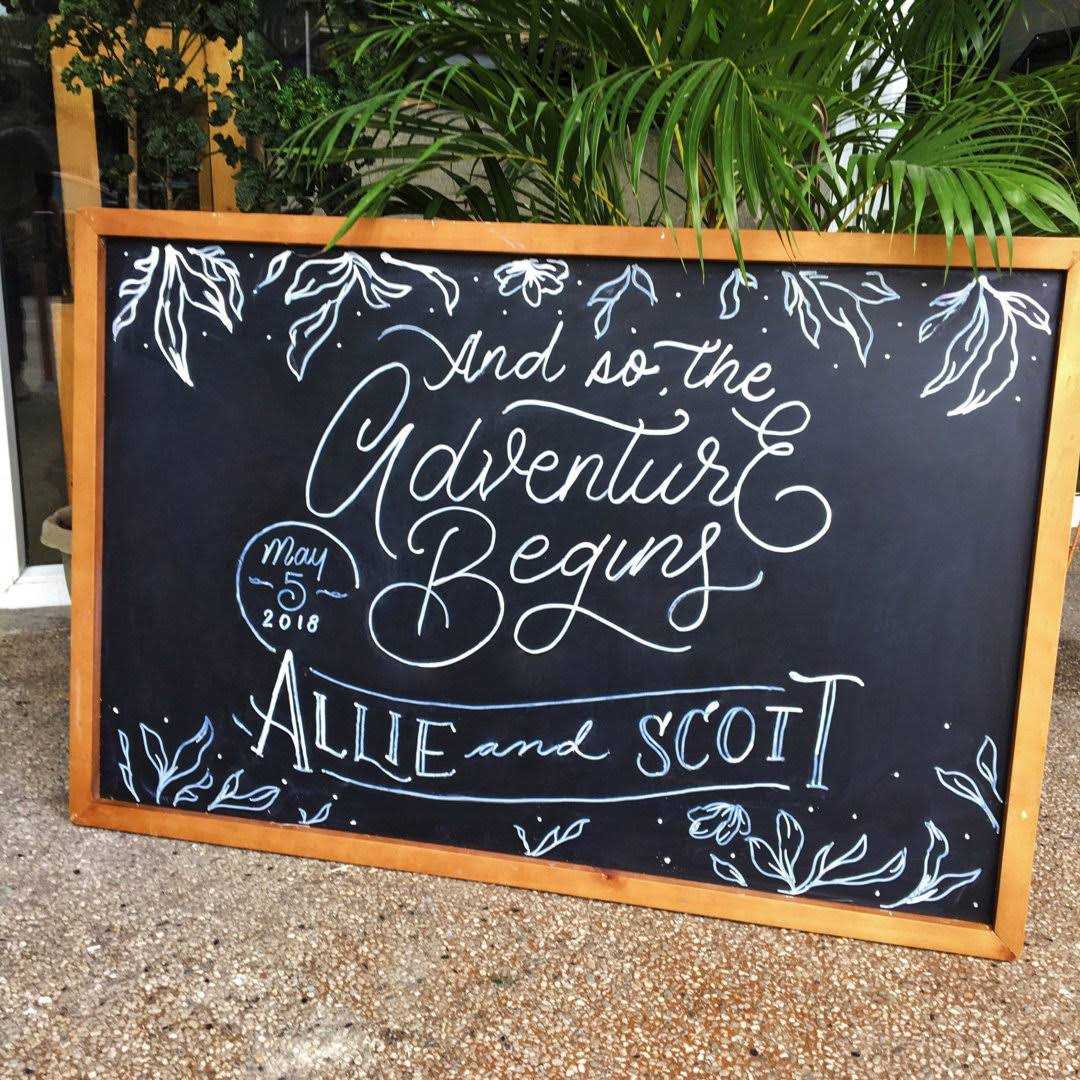 And so, the
Adventure
Begins
May
5
2018
ALLIE and SCOTT